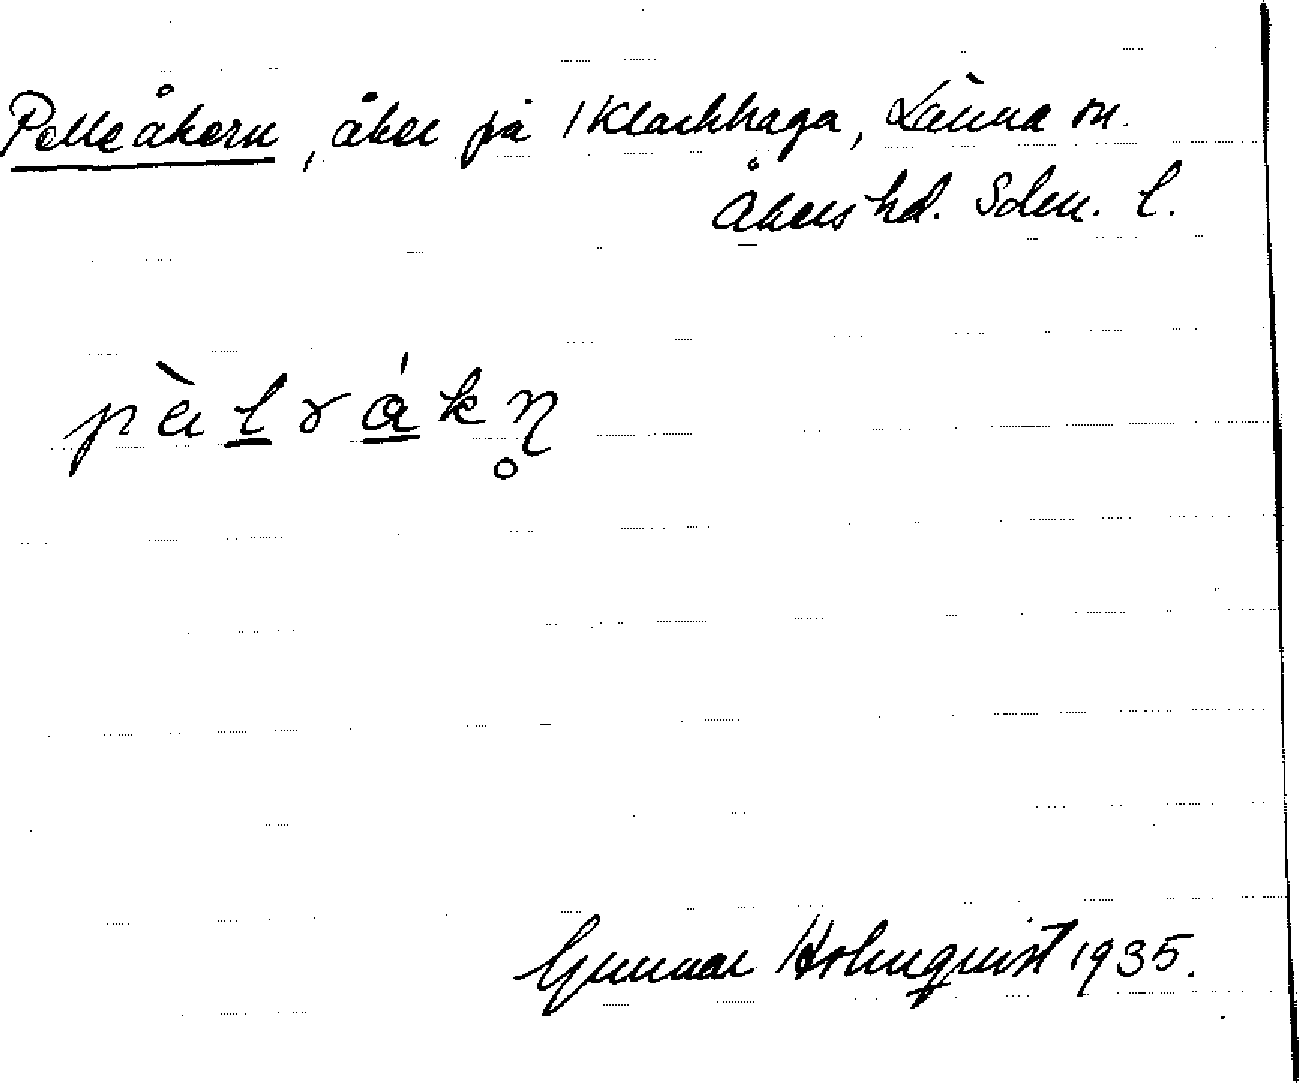 Pelleåkern, åker på /Klackhaga, Länna sn.
Åkers hd. Sdm. l.
pälråkn̥
Gunnar Holmquist 1935.